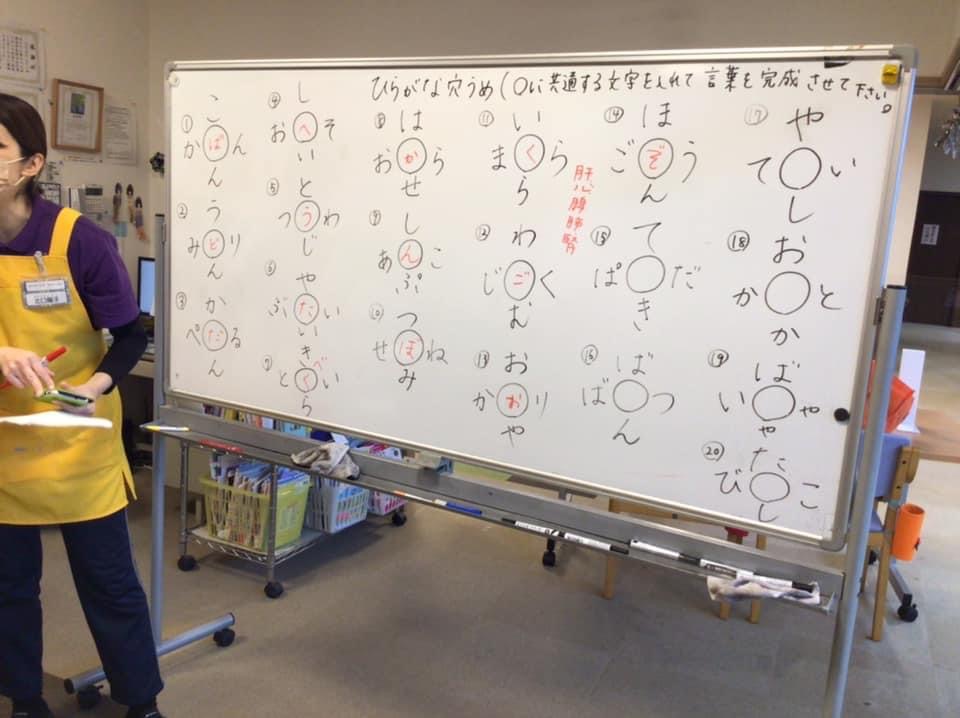 ひらがな穴うめ(○に共通する文字を入れて 言葉を完成させて下さい。
① こ
かばん
ん
② う
みどり
ん
③ か
ぺだる
ん
④ し
おへそ
い
⑤ と
つうわ
じ
⑥ や
ぶたい
い
⑦ き
とくべい
ら
⑧ は
おから
せ
⑨ し
あんこ
ぷ
⑩ つ
せぼね
み
⑪ い
まくら
ら
⑫ わ
じごく
む
⑬ お
かおり
や
⑭ ほ
ごぞう
ん
肝心脾肺腎
⑮ て
ぱ○だ
き
⑯ ば
ば○つ
ん
⑰ や
て○い
し
⑱ お
か○と
か
⑲ ば
い○や
や
⑳ た
び○こ
し